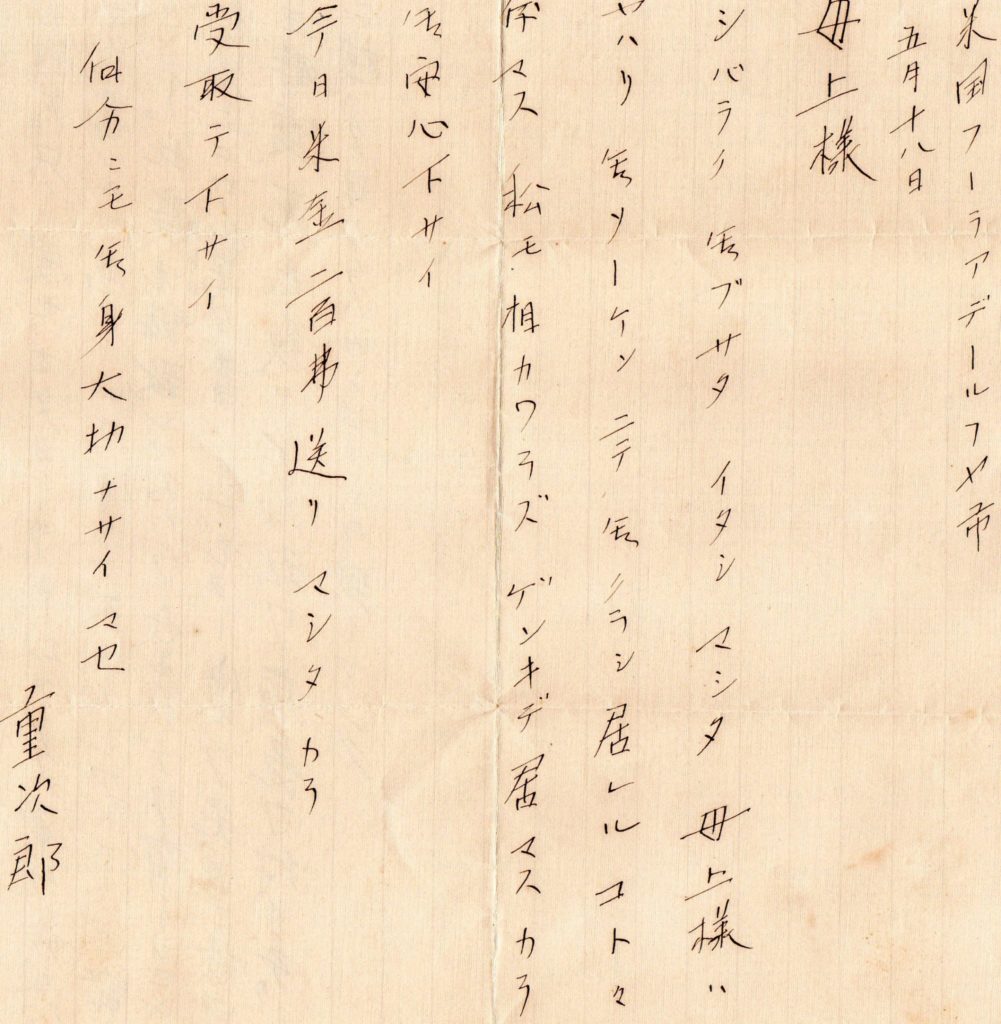 米国フーラアデールフヤ市
五月十八日
母上様
シバラク 御ブサタ イタシ マシタ 母上様ハ
ヤハリ 御ソーケン ニテ 御クラシ 居レル コト々
存マス 私モ 相カワラズ ゲンキデ 居マスカラ
御安心下サイ
今日米金二百弗送リ マシタカラ
受取テ下サイ
何分ニモ御身大切ナサイマセ
重次郎